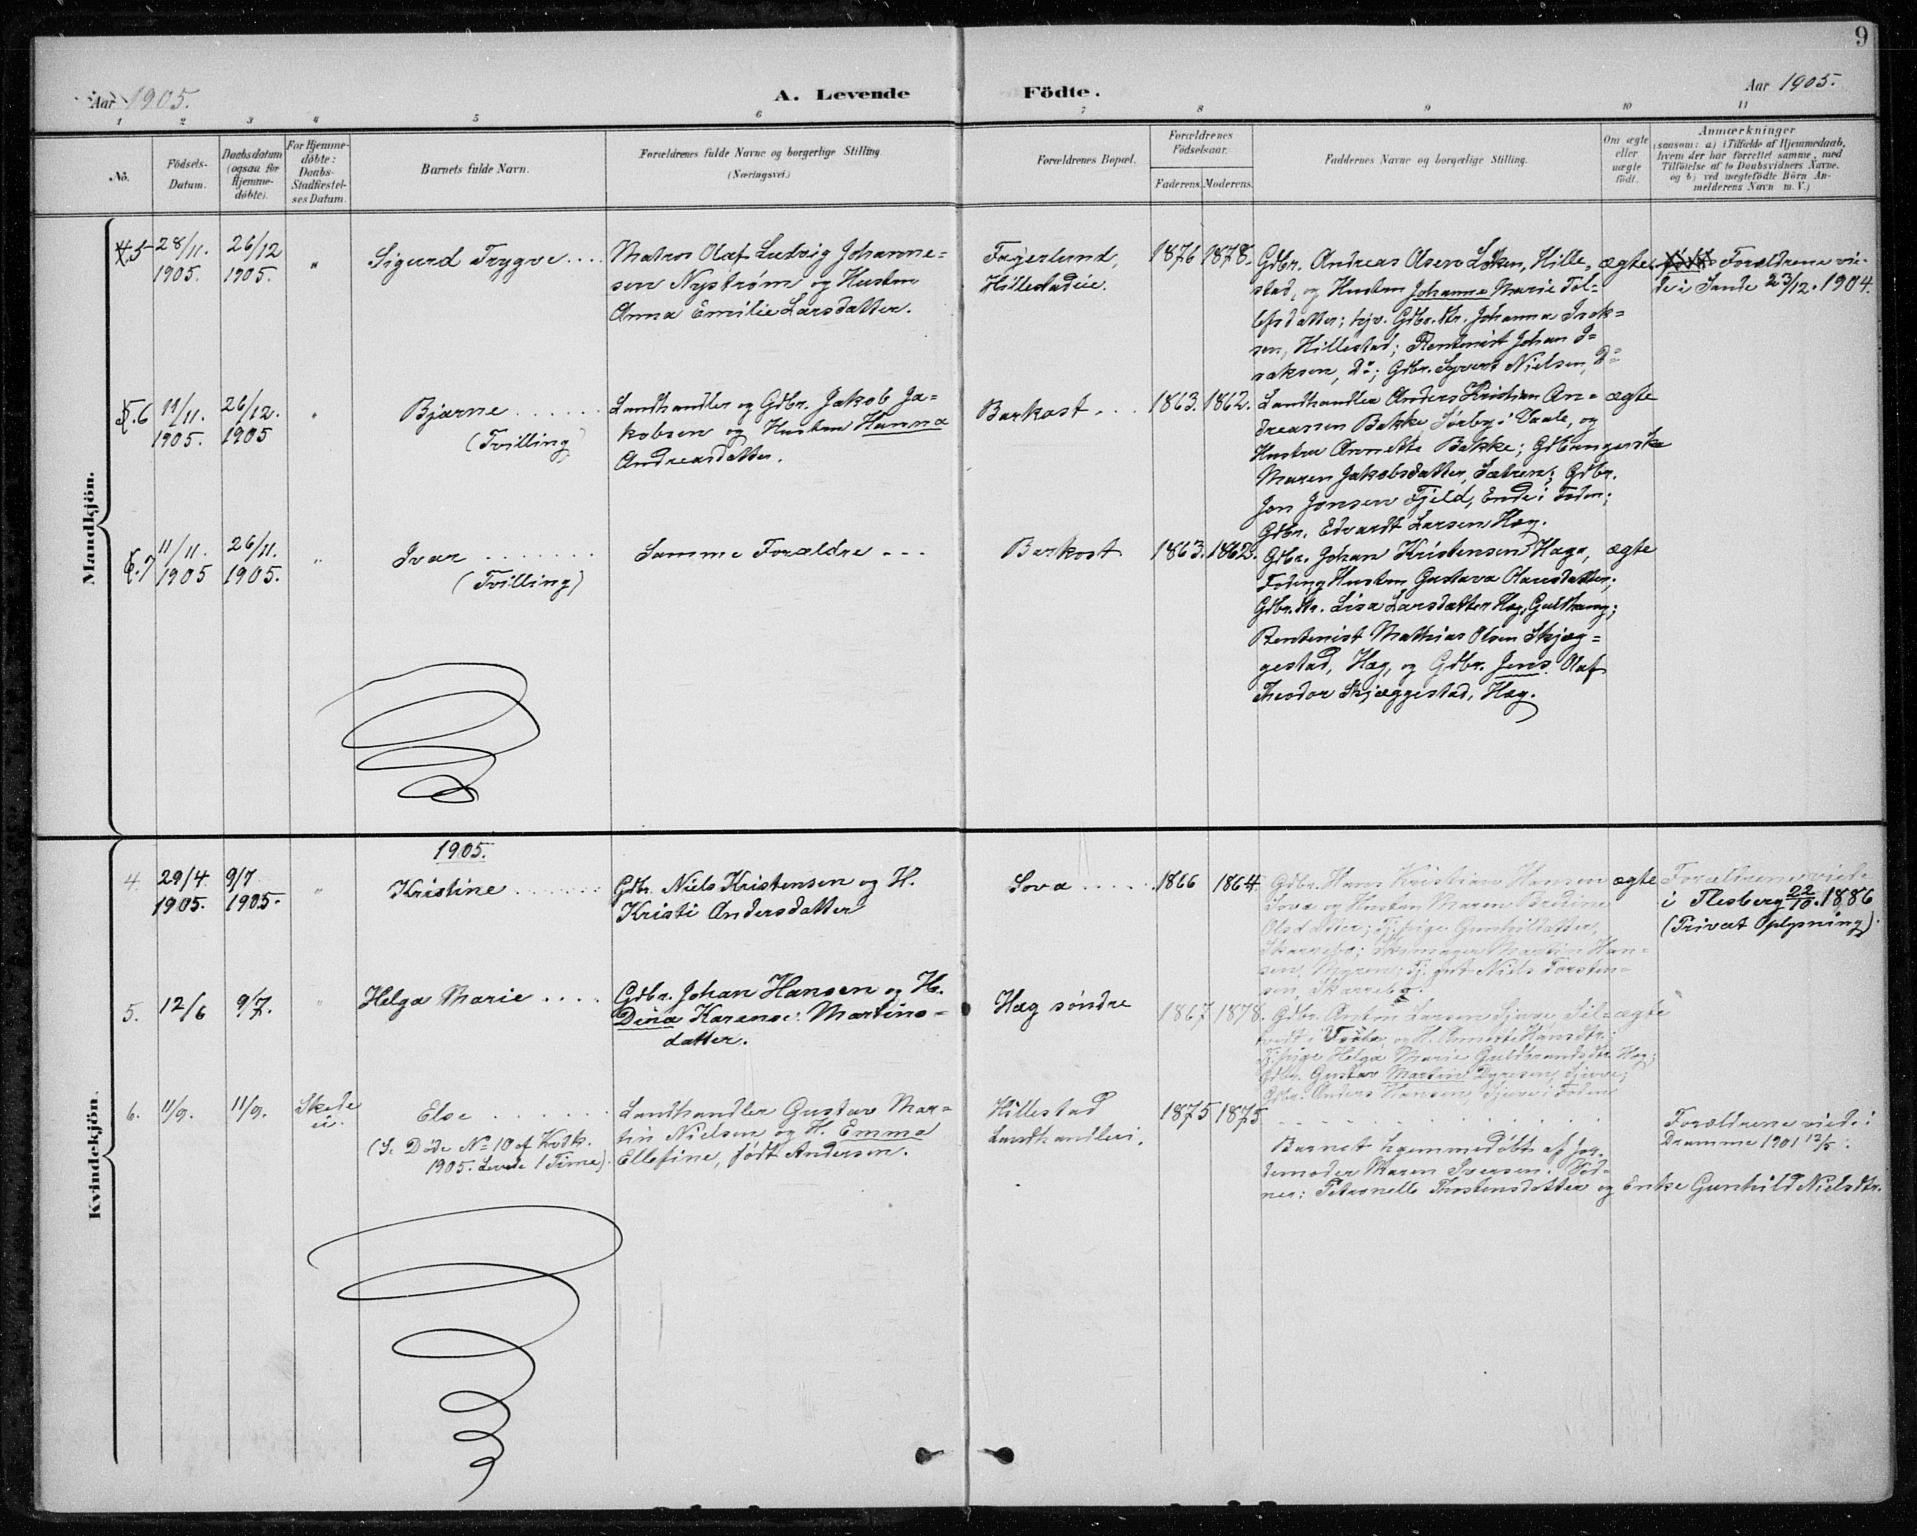 9
Aar 1905.
A. Levende
Födte.
Aar 1905.
1
2
3
4
5
6
7
8
9
10
11
No.
Födsels-
Datum.
Daabsdatum
(ogsaa for
Hjemme-
døbte).
For Hjemme-
døbte:
Daabs-
Stadfæstel-
ses Datum.
Barnets fulde Navn.
Forældrenes fulde Navne og borgerlige Stilling
(Næringsvei.)
Forældrenes Bopæl.
Forældrenes
Födselsaar.
Faderens.
Moderens.
Faddernes Navne og borgerlige Stilling.
Om ægte
eller
uægte
født.
Anmærkninger
(saasom: a) i Tilfælde af Hjemmedaab,
hvem der har forrettet samme, med
Tilføielse af to Daabsvidners Navne.
og b) ved uægtefødte Börn An-
melderens Navn m. V.)
Mandkjön.
5
28/11.
1905.
26/12
1905.
"
Sigurd Trygve....
Matros Olaf Ludvig Johanne-
sen Nystrøm og Hustru
Anna Emilie Larsdatter.
Fagerlund,
Hillestadeie.
1876
1878.
Gdbr. Andreas Olsen Løken, Hille-
stad, og Hustru Johanne Marie Tol-
lefsdatter; Gdbr. Johanna Isak-
sen, Hillestad; Rentenist Johan I-
saksen, Do; Gdbr. Syvert Nielsen, Do
ægte
Forældrene vie-
de i Sande 23/12. 1904.
6
11/11.
1905.
26/12.
1905
"
Bjarne......
(Tvilling)
Landhandler og Gdbr. Jakob Ja-
kobsen og Hustru Hanna
Andreasdatter.
Barkost...
1863.
1862.
Landhandler Anders Kristian An-
dreassen Bakke, Sørby i Vaale, og
Hustru Annette Bakke; Gdbrugerske
Maren Jakobsdatter, Sætren; Gdbr.
Jon Jonsen Fjeld, Ende i Foden;
Gdbr. Edvardt Larsen Hæg.
ægte
7
11/11.
1905
26/11.
1905.
"
Ivar.......
(Tvilling)
Samme Forældre ---
Barkost
1863.
1862.
Gdbr. Johan Kristensen Haga,
Foden, Hustru Gustava Olausdatter;
Gdbr. Lisa Larsdatter Hæg,
Rentenist Mathias Olsen Skjæg-
gestad, Hæg, og Gdbr. Jens Olaf
Theodor Skjæggestad, Hæg.
ægte
Kvindekjön.
1905.
4
29/4
1905.
9/7
1905.
"
Kristine.......
Gdbr. Niels Kristensen og H.
Kristi Andersdatter
Sova.....
1866
1864
Gdbr. Hans Kristian Hansen
Sova og Hustru Maren Bredine
Olsdatter; Tj.pige
Skarrebo; Martin Han-
sen, Myren; Tj.gut Niels Torsten-
sen, Skarrebo.
ægte
Forældrene viede
i Flesberg 22/10. 1886
(Privat Oplysning).
5.
12/6
9/7.
"
Helga Marie....
Gdbr. Johan Hansen og H.
Dina Karense Martins-
datter.
Hæg søndre
1867
1878.
Gdbr. Anton Larsen
og H. Annette Hansdtr.;
Tj.pige Helga Marie Guldbrandsdtr. Hæg;
Gdbr. Gustav Martin Dyresen,
Gdbr. Anders Hansen, i Foden
ægte
6.
11/9.
11/9.
Skede
ei.
Else.......
(Se Døde No 10 af Kvdk.
1905. Levede 1 Time).
Landhandler Gustav Mar-
tin Nielsen og H. Emma
Ellefine, født Andersen.
Hillestad
Landhandleri.
1875
1875
Barnet hjemmedøbt af Jor-
demoder Maren Iversen. Vid-
ner: Petronelle Thostensdatter og Enke Gunhild Nielsdtr.
Forældrene viede i
Dramme 1901 12/5.